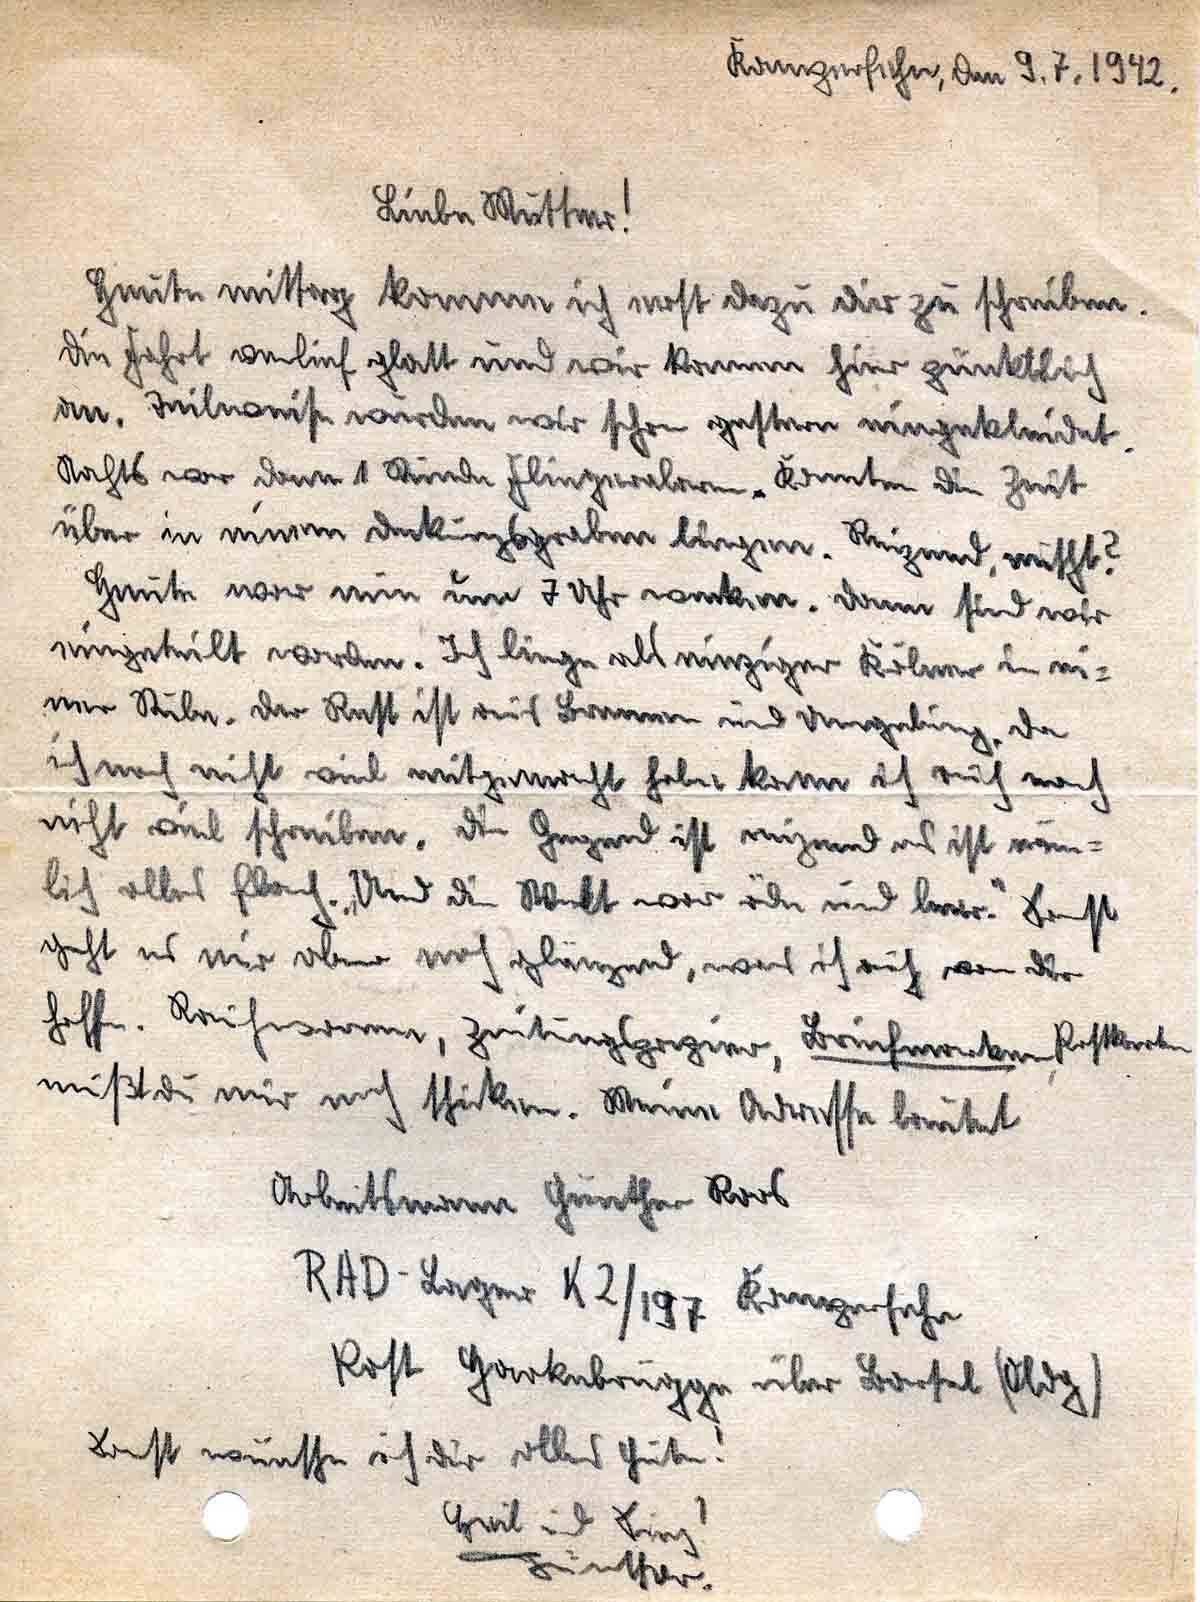 Kamperfehn, den 9.7.1942.
Liebe Mutter!
Heute mittag komme ich erst dazu dir zu schreiben.
Die Fahrt verlief glatt und wir kamen hier pünktlich
an. Teilweise wurden wir schon gestern eingekleidet.
Nachts war dann 1 Stunde Fliegeralarm. Konnten die Zeit
über in einem Deckungsgraben liegen. Reizend, nicht?
Heute war nun um 7 Uhr wecken. Dann sind wir
eingeteilt worden. Ich liege als einziger Kölner in ei=
ner Stube. Der Rest ist aus Bremen und Umgebung. Da
ich noch nicht viel mitgemacht habe kann ich auch noch
nicht viel schreiben. Die Gegend ist reizend es ist näm=
lich alles flach. „Und die Welt war öde und leer.“ Sonst
geht es mir aber noch glänzend, was ich auch von dir
hoffe. Rauchwaren, Zeitungspapier, Briefmarken, Postkarten
mußt du mir noch schicken. Meine Adresse lautet
Arbeitsmann Günther Roos
RAD-Lager K2/197 Kamperfehn
Post Harkebrügge über Barsel (Oldg)
Sonst wünsche ich dir alles Gute!
Heil und Sieg!
Günther.